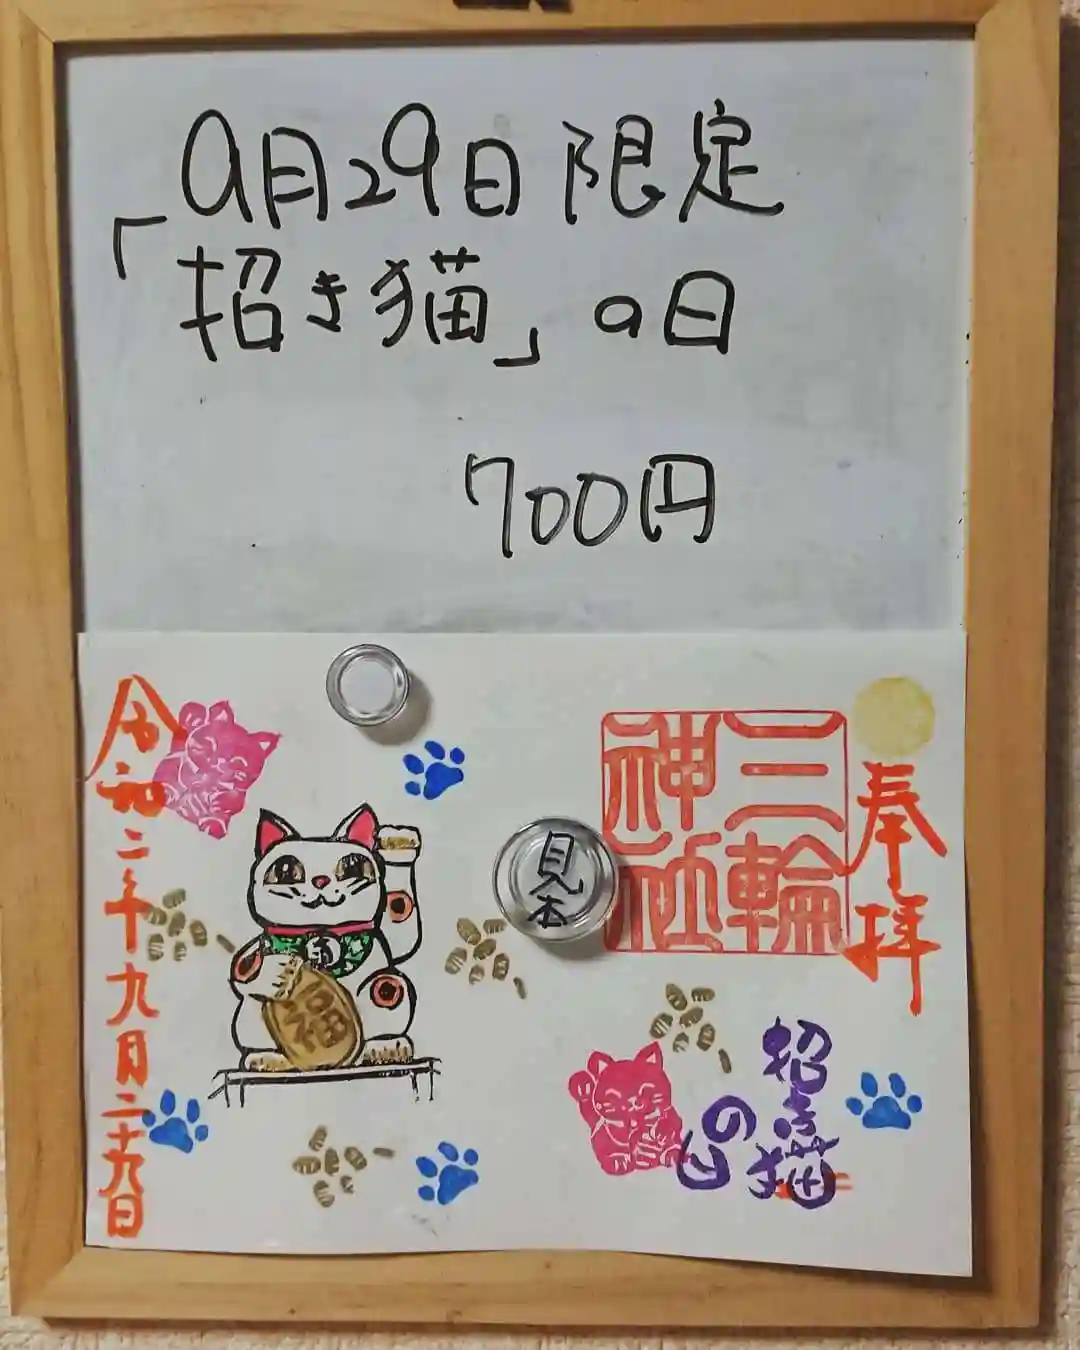 9月29日限定
「招き猫」の日
700円
奉拝
三輪
神社
見本
招き猫
の日
福
令和二年九月二十九日